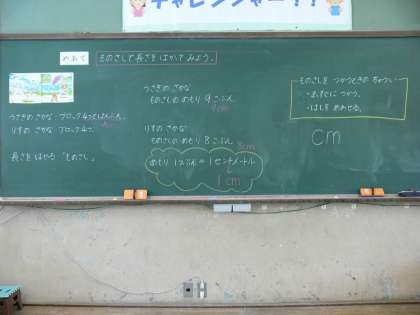 チャレンジャー!!
めあて
ものさしで長さを はかってみよう。
うさぎの さかな ブロック4つとはんぶん。
りすの さかな ブロック4つ。
長さを はかる 「ものさし」
うさぎの さかな
ものさしの めもり 9こぶん
9cm
りすの さかな
ものさしの めもり 8こぶん
8cm
めもり 1つぶん = 1センチメートル
1cm
ものさしを つかうときの ちゅうい
・まっすぐに つかう。
・はしを あわせる。
cm